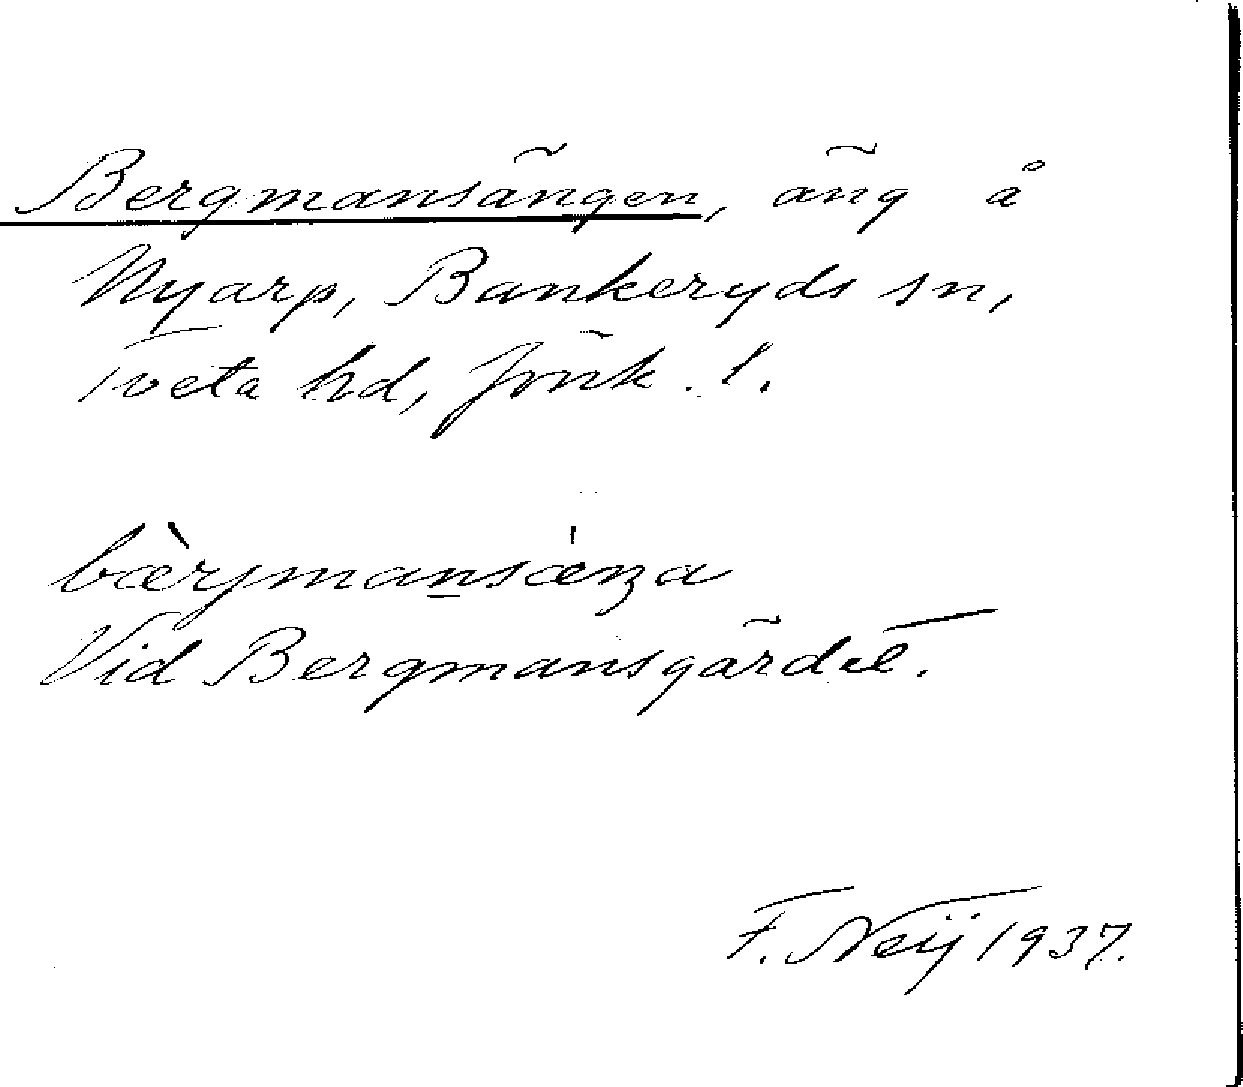 Bergmansängen, äng å
Nyarp, Bankeryds sn,
Tveta hd, Jönk. l.
bærjmansæŋa
Vid Bergmansgärdet.
F. Neij 1937.